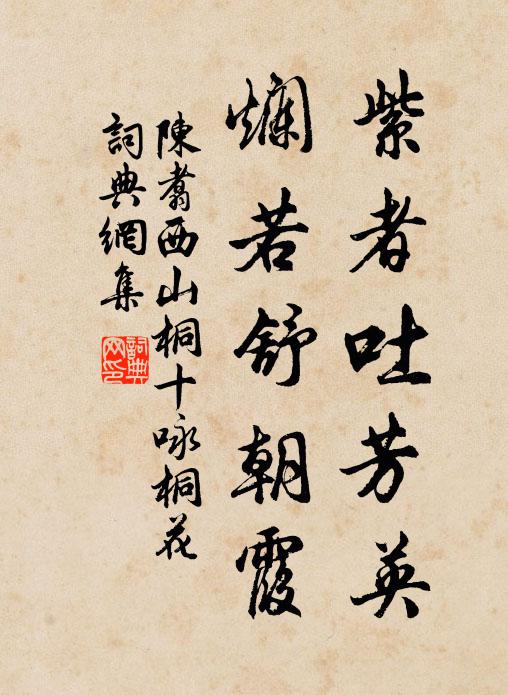 紫者吐芳英
爛若舒朝霞
陳翥西山桐十咏桐花
詞典網集
詞典网印